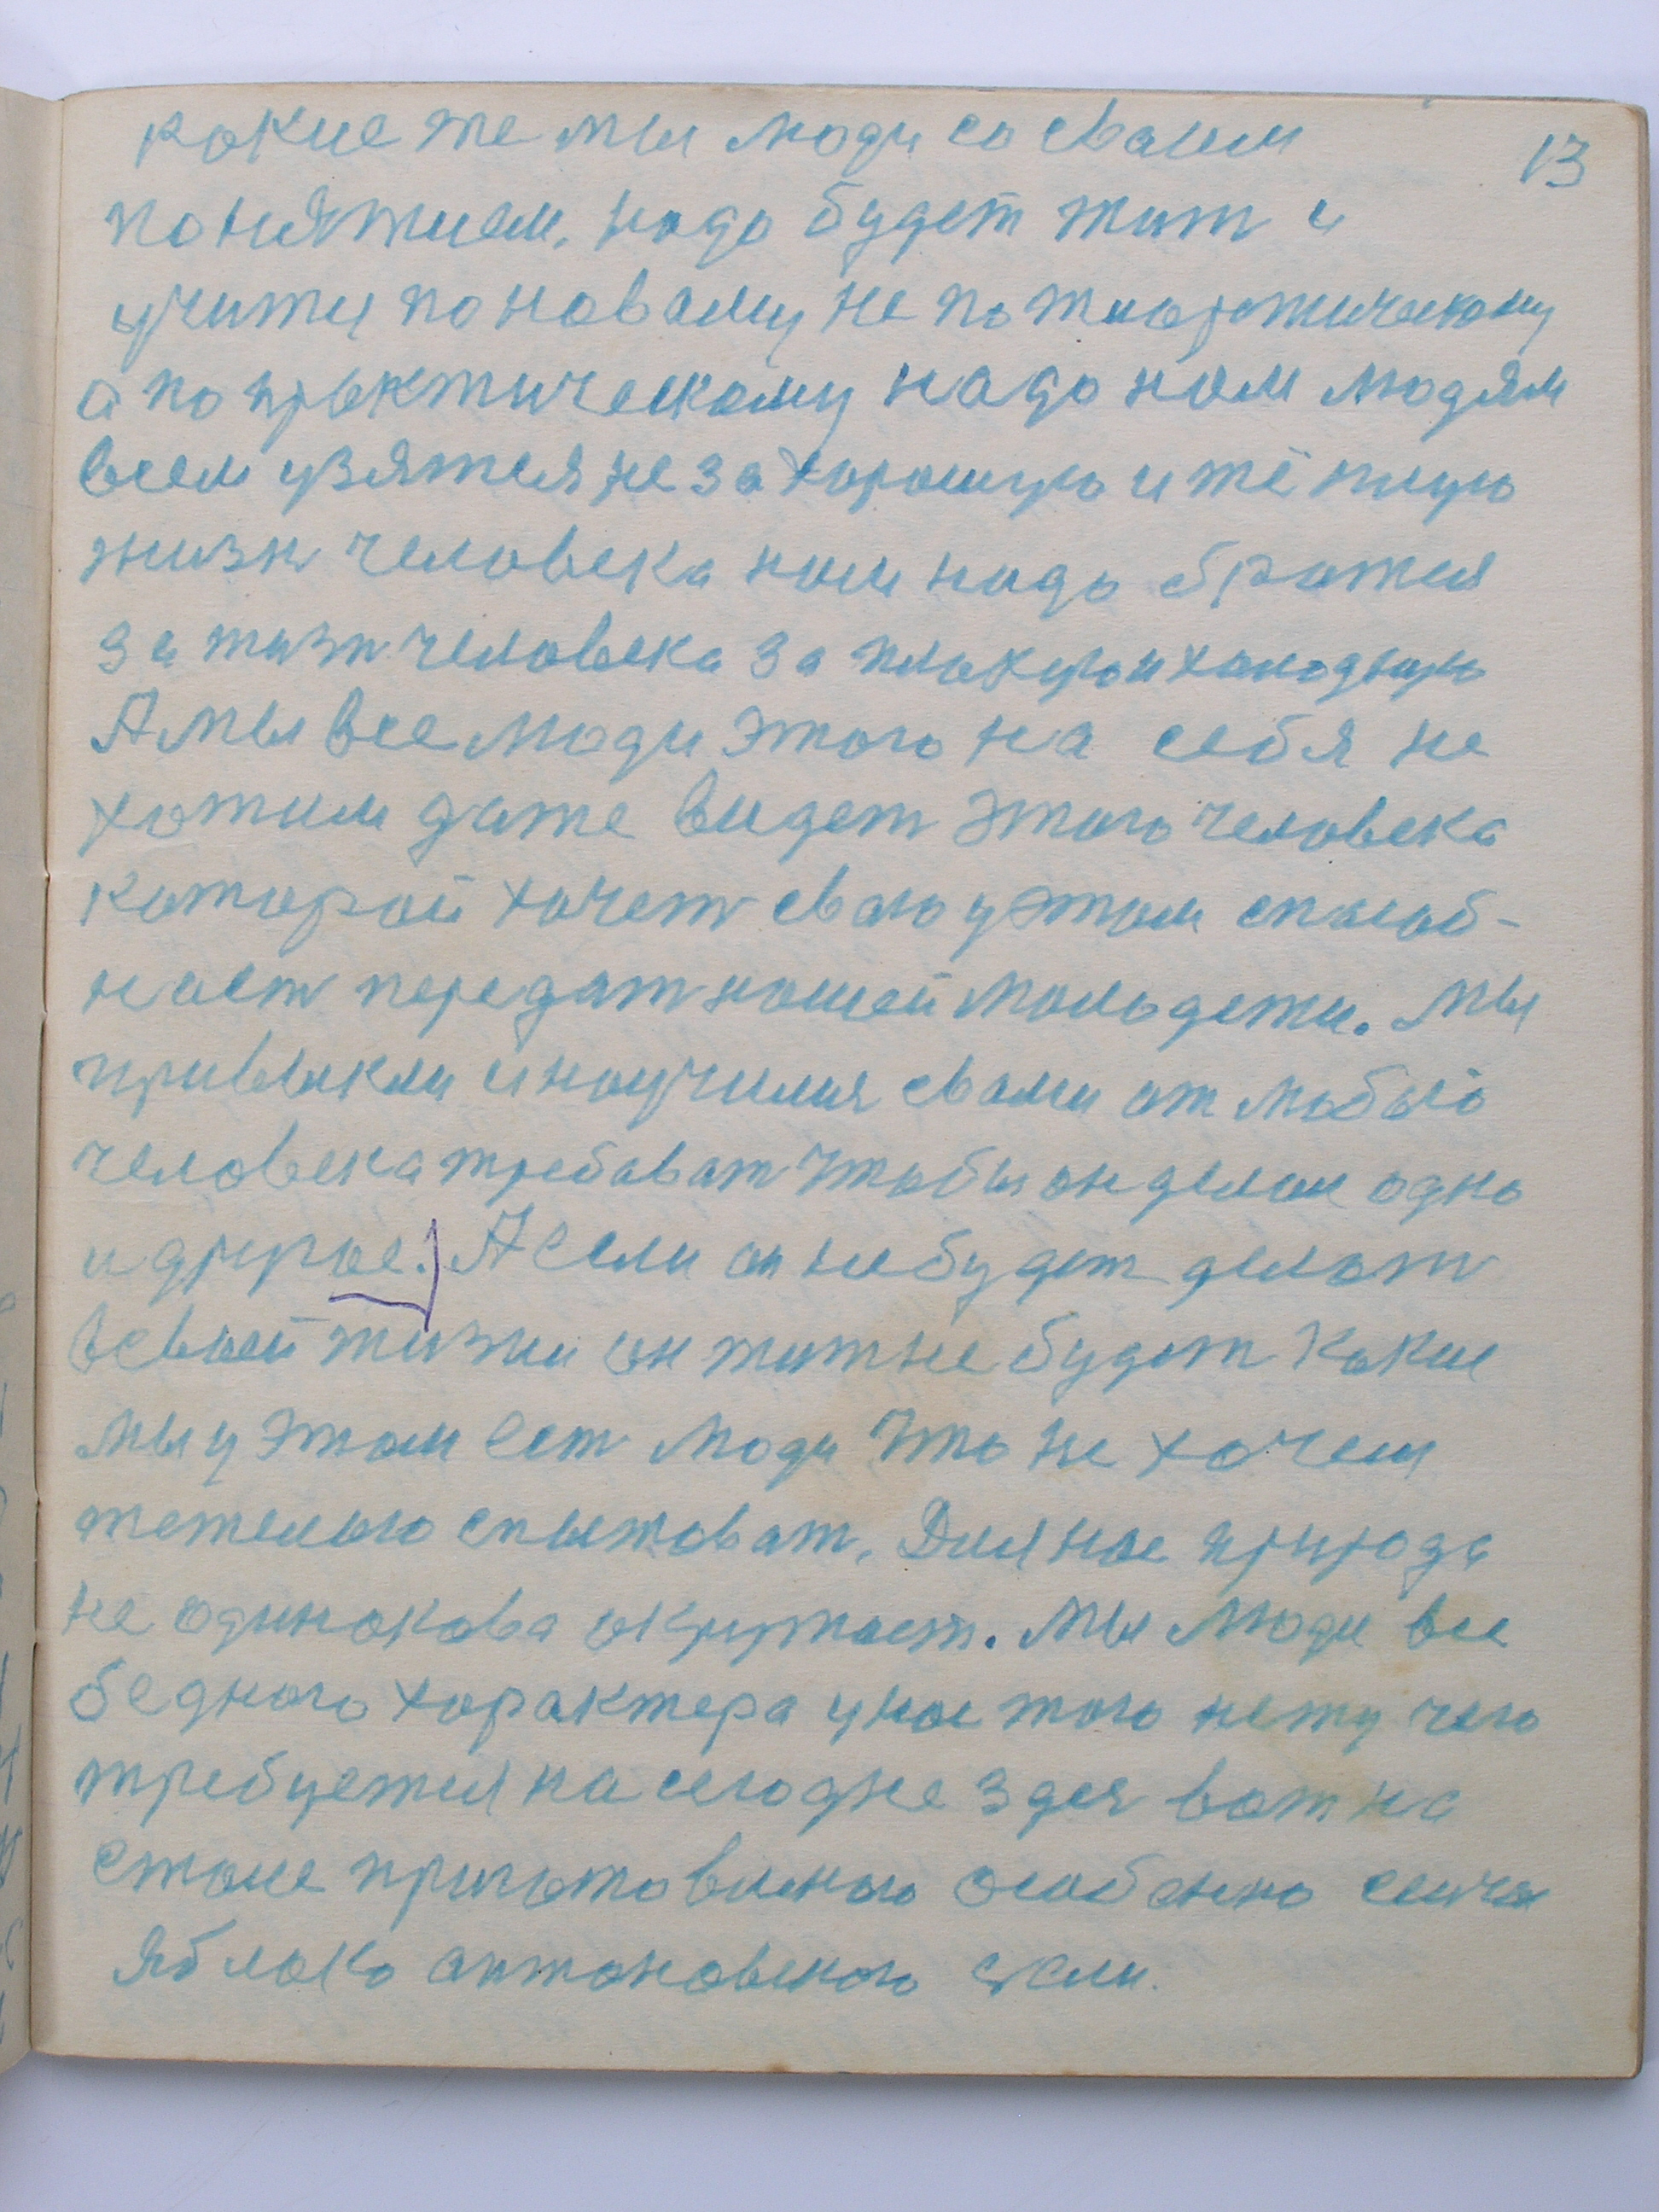 какие же мы люди са сваим
13
понятием. надо будет жит и
учится по новаму не по тиоретическому
а по практическому надо нам людям
всем узятся не за хорошую и тёплую
жизн человека нам надо братся
за жизн человека за плохую и холодную
А мы все люди этого на себя не
хотим даже видет этого человека
каторай хочет сваю у этом способ-
наст передат нашей молодежи. Мы
привыкли и научился свами от любого
человека требават чтобы он делал одно
и другое. А если он не будет делат
в своей жизни он жит не будет Какие
мы у этом ест люди что не хочем
тежелаю спытоват. Для нас природа
не одинакова окружает. Мы люди все
бедного характера у нас того нету чего
требуется на сегодне здея вот на
столе приготовленого особенно
яблоко антоновского если.